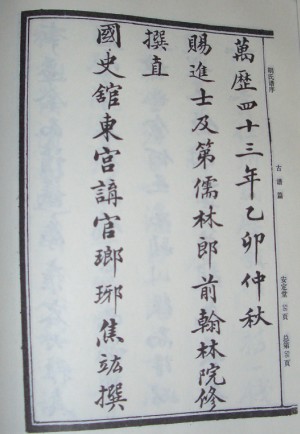 萬歷四十三年乙卯仲秋
賜進士及第儒林郎前翰林院修
撰直
國史舘東宮講官瑯琊焦竑撰
古譜篇
安定堂